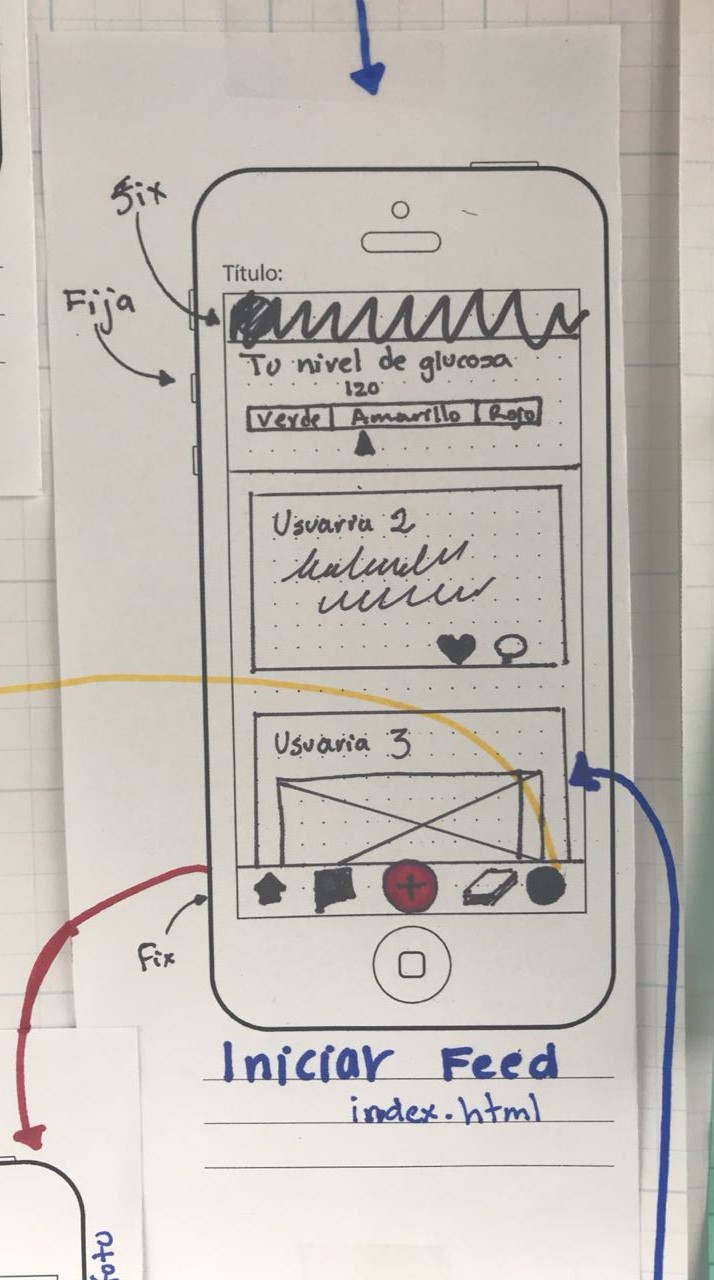 Fix
Fija
Título:
Tu nivel de glucosa
120
Verde Amarillo Rojo
Usuaria 2
Usuaria 3
Fix
Iniciar Feed
index.html
foto